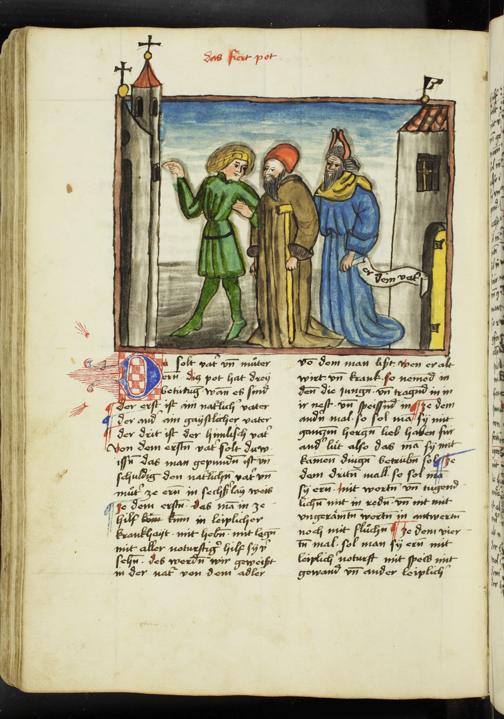 das fiert pot
er dem vat
Du solt vat vn̄ můter
ern dis pot hat dreẏ
bedeutūg wan es sind
der erst ist am natůrlich vater
der and am gaistlicher vater
der drit ist der himlisch vat
von dem erstn̄ vat solt du w
issn̄ das man gepundn̄ ist vn̄
schuldig den natůrlichn̄ vat vn̄
můt ze ern in sechslaẏ weis
ze dem erstn̄ das ma in ze
hilf kům in leiplicher
krankhait mit hebn̄ mit legn̄
mit aller noturftig hilf sẏ v̄
sehn̄ des werdn̄ wir geweist
in der nat von dem adler
vō dem man list wen er alt
wirt vn̄ krank so nemend in
den die jungn̄ vn̄ tragnd in in
ir nest vn̄ speissnd in ze dem
andn̄ mal so sol ma sẏ mit
ganczn̄ herczn̄ lieb habn̄ fur
and lut also das ma sẏ mit
kainen dingn̄ betrubn̄ sol ze
dem dritn̄ mall so sol ma
sẏ ern̄ mit wortn̄ vn̄ tugend
lichn̄ mit in redn̄ vn̄ nit mit
vngeratn̄ wortn̄ in antwertn̄
noch mit flůchn̄ ze dem vier
tn̄ mal sol man sẏ ern mit
leiplich noturft mit speis mit
gewand vn̄ ander leiplich